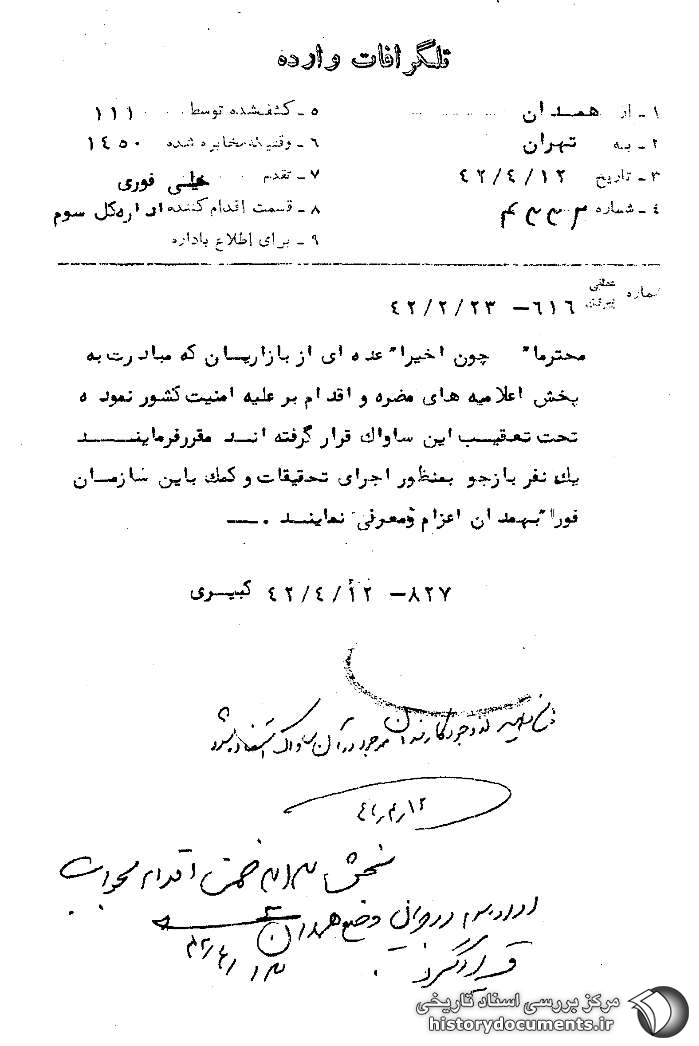 تلگرافات وارده
۱ - از همدان
۲ - به تهران
۳ - تاریخ ۴۲/۴/۱۲
۴ - شماره
۵ - کشف شده توسط ۱۱۱
۶ - وقتیکه مخابره شده ۱۴۵۰
۷ - تقدم خیلی فوری
۸ - قسمت اقدام کننده اداره کل سوم
۹ - برای اطلاع باداره
شماره عطفی پیروی
۶۱۶ – ۴۲/۲/۲۳
محترما" چون اخیرا" عده ای از بازاریان که مبادرت به
پخش اعلامیه های مضره و اقدام بر علیه امنیت کشور نموده
تحت تعقیب این ساواک قرار گرفته اند مقررفرمایند
یک نفر بازجو بمنظور اجرای تحقیقات و کمک باین سازمان
فورا" بهمدان اعزام ومعرفی نمایند .—
۸۲۷ – ۴۲/۴/۱۲ کبیری
از وجود کارمندان موجود در آن ساواک استفاده شود
بخش ۳۱۲ ضمن اقدام بجواب
اداره سوم در جریان وضع همدان
قرار گیرد .
۴۲/۴/۱۳
مرکز بررسی اسناد تاریخی
historydocuments.ir